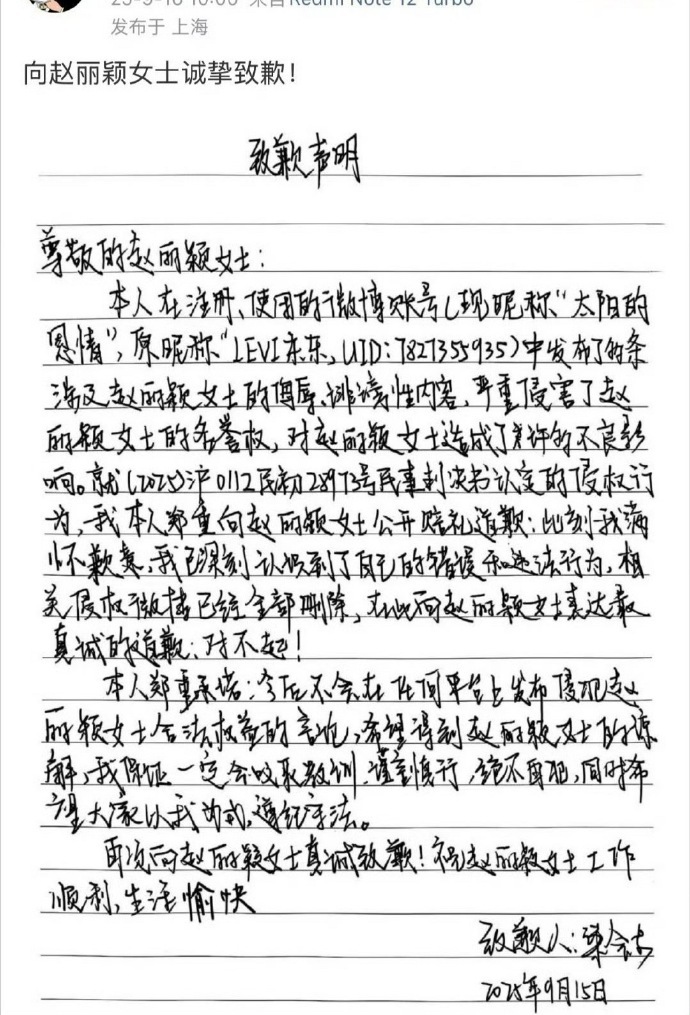 25-9-16 10:00 来自Redmi Note 12 Turbo
发布于 上海
向赵丽颖女士诚挚致歉！
致歉声明
尊敬的赵丽颖女士：
本人在注册、使用的微博账号（现昵称“太阳的
恩情”，原昵称“LEVI东东，UID：7827355935）中发布了的条
涉及赵丽颖女士的侮辱、诽谤性内容，严重侵害了赵
丽颖女士的名誉权，对赵丽颖女士造成了的不良影
响。就（2025）沪0112民初28973号民事判决书认定的侵权行
为，我本人郑重向赵丽颖女士公开赔礼道歉：此刻我满
怀歉意，我已深刻认识到了自己的错误和违法行为，相
关侵权微博已经全部删除，在此向赵丽颖女士表达最
真诚的道歉：对不起！
本人郑重承诺：今后不会在任何平台上发布侵犯赵
丽颖女士合法权益的言论，希望得到赵丽颖女士的谅
解，我保证一定会吸取教训、谨言慎行，绝不再犯，同时希
望大家以我为戒，遵纪守法。
再次向赵丽颖女士真诚致歉！祝赵丽颖女士工作
顺利，生活愉快
致歉人：梁
2025年9月15日